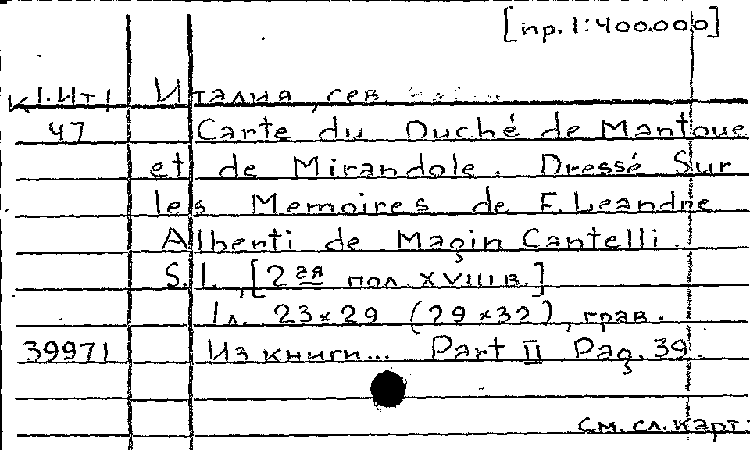 [пр. 1:400.000]
К1.Ит1 Италия, сев.
47 Carte du Duché de Mantoue
et de Mirandole. Dressé Sur
les Memoires de F. Leandre
Alberti de Magin Cantelli.
S. l., [2ая пол XVIII в.]
1 л. 23×29 (29×32), грав.
39971 Из книги... Part II Pag. 39.
См. сл. карт.